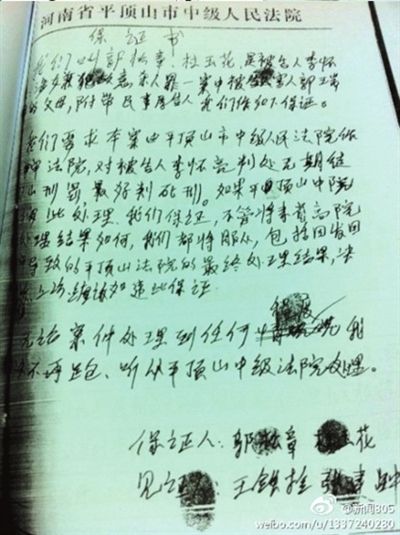 河南省平顶山市中级人民法院
保证书
我们叫郭松章·杜玉花,是被告人李怀
犯故意杀人罪一案中被害人郭
的父母,附带民事原告人 我们作如下保证。
我们要求本案由平顶山市中级人民法院作
审法院,对被告人李怀亮判处无期徒
刑罚 最好判死刑。如果平顶山中院
此处理.我们保证,不管将来最高院
处理结果如何,我们都将服从,包括因发回
导致的平顶山法院的最终处理结果,决
上访 如违此保证
无论案件处理到任何 我
不再 听从平顶山中级法院处理。
保证人:郭松章 杜玉花
见证人: 王铁拴 张建
@新闻305
weibo.com/u/1337240280